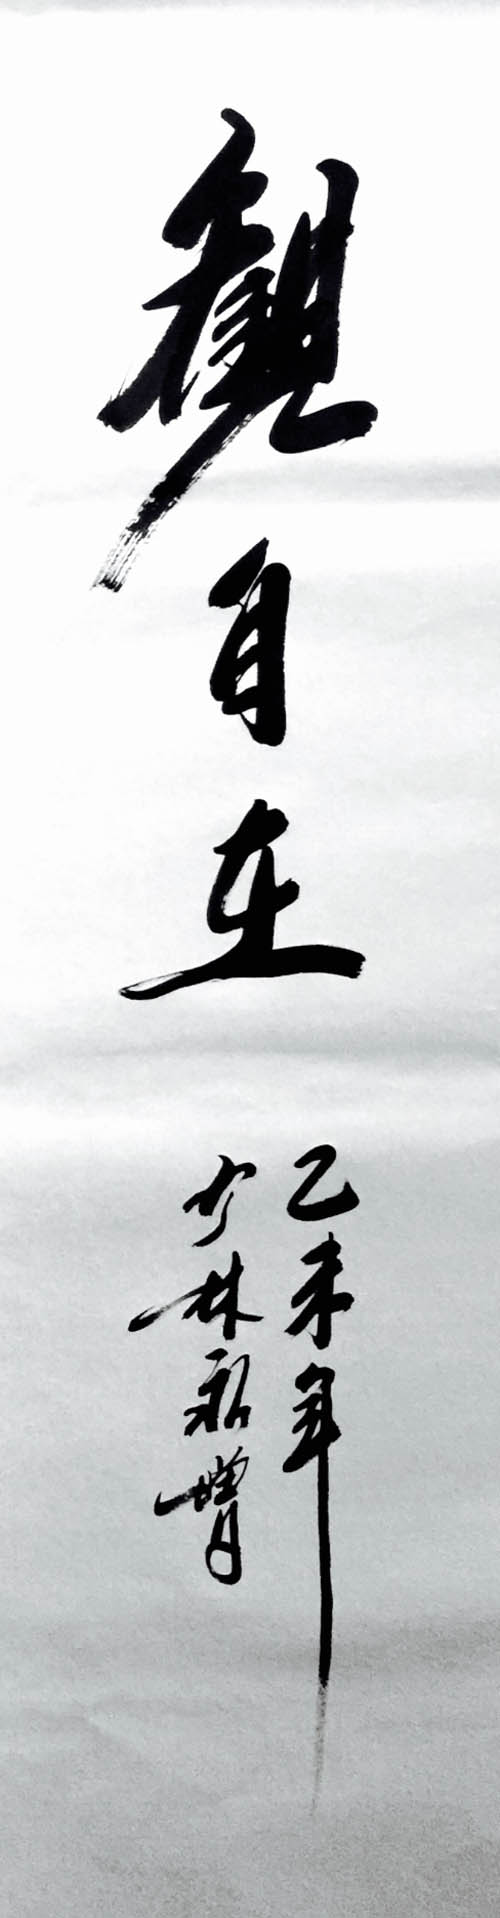 觀自在
乙未年
少林延增